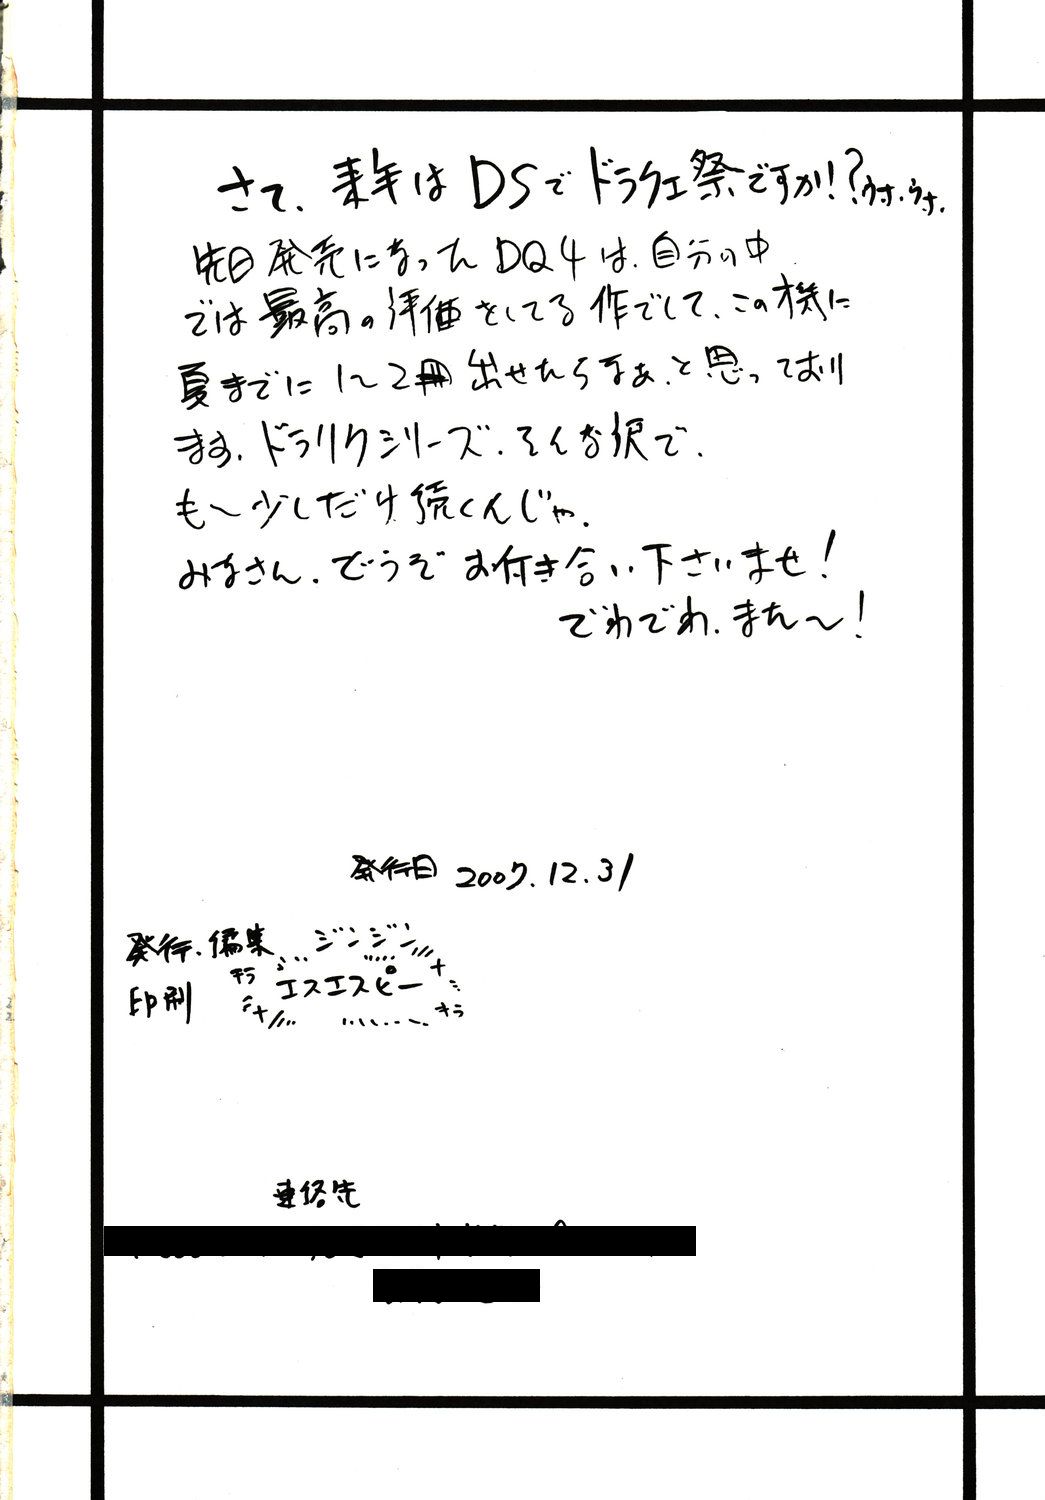 さて、来年はDSでドラクエ祭ですか!?ウサ、ウサ、
先日発売になったDQ4は、自分の中
では最高の評価をしてる作でして、この機に
夏までに1〜2冊出せたらなぁ、と思っており
ます。ドラリクシリーズ、そんな訳で、
も〜少しだけ続くんじゃ。
みなさん、どうぞお付き合い下さいませ!
でわでわ、また〜!
発行日 2007.12.31
発行、編集 ジンジン
印刷 キラ エスエスピー キラ
連絡先